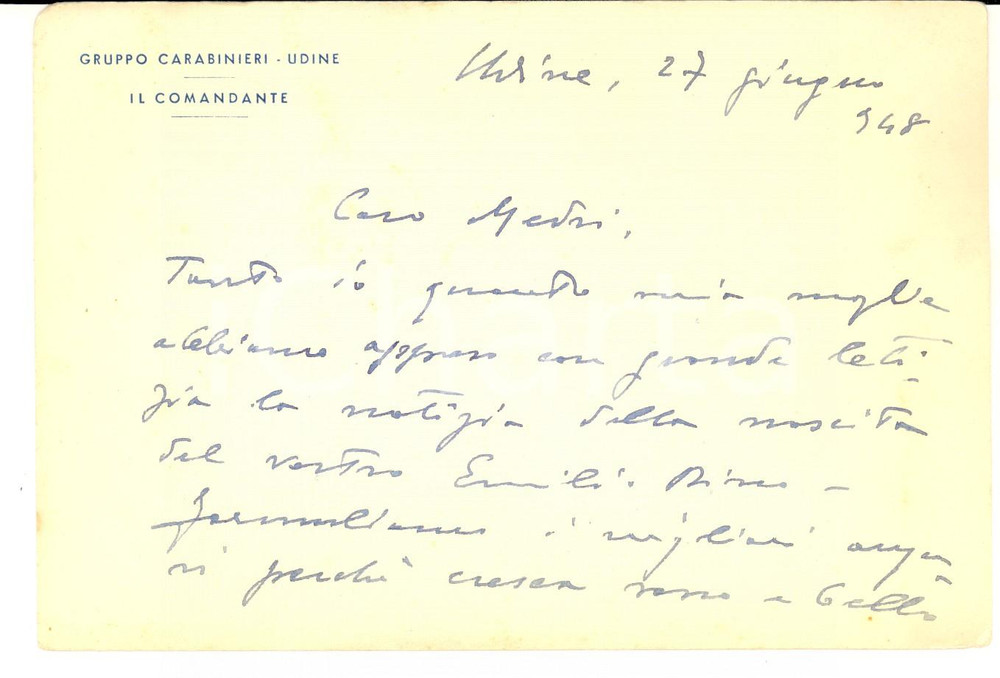 GRUPPO CARABINIERI - UDINE
IL COMANDANTE
Udine, 27 giugno
948
Caro Medri,
Tanto io quanto mia moglie
abbiamo appreso con grande leti-
zia la notizia della nascita
del vostro Emilio Dino -
Formuliamo i migliori augu-
ri perchè cresca sano e bello